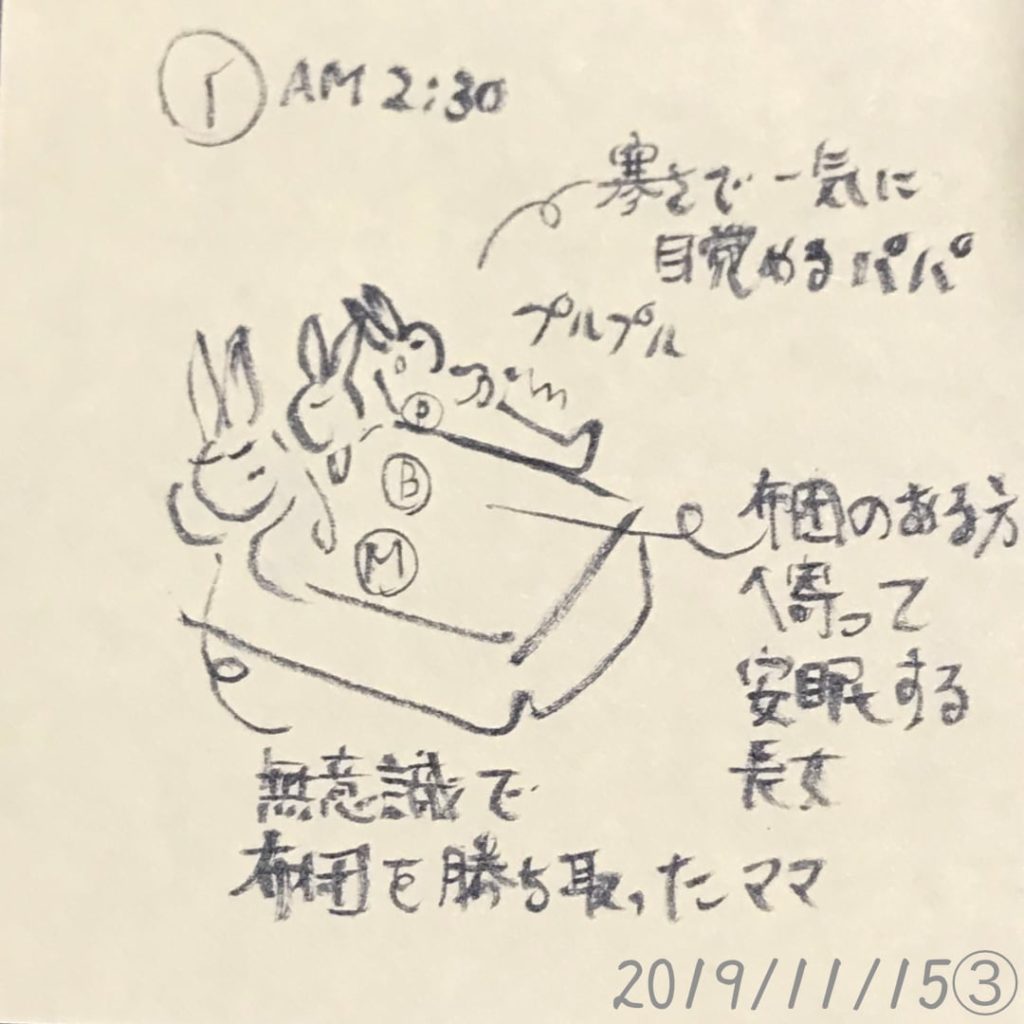 AM 2:30
寒さで一気に
目覚めるパパ
プルプル
P
B
M
布団のある方
へ寄って
安眠する
長女
無意識で
布団を勝ち取ったママ
2019/11/15③